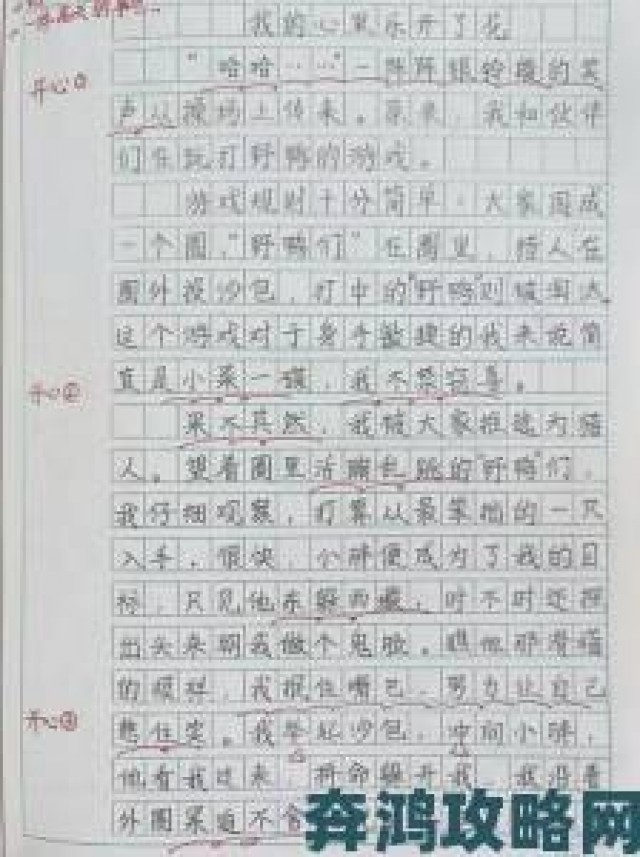 我的心里乐开了花
开心①
"哈哈……"一阵阵银铃般的笑
声从操场上传来。原来,我和伙伴
们在玩打野鸭的游戏。
游戏规则十分简单,大家围成
一个圈,"野鸭们"在圈里,猎人在
圈外投沙包,打中的"野鸭"则被淘汰。
这个游戏对于身手敏捷的我来说简
开心②
直是小菜一碟,我不禁窃喜。
果不其然,我被大家推选为猎
人。望着圈里活蹦乱跳的"野鸭"们,
我仔细观察,打算从最笨拙的一只
入手。很快,小胖便成为了我的目
标,只见他东躲西藏,时不时还探
出头来朝我做个鬼脸。瞧他那滑稽
的模样,我抿住嘴巴,努力让自己
开心③
憋住笑。我举起沙包,冲向小胖,
他看我过来,拼命躲开我,我沿着
外圈紧追不舍
奔鸿攻略网